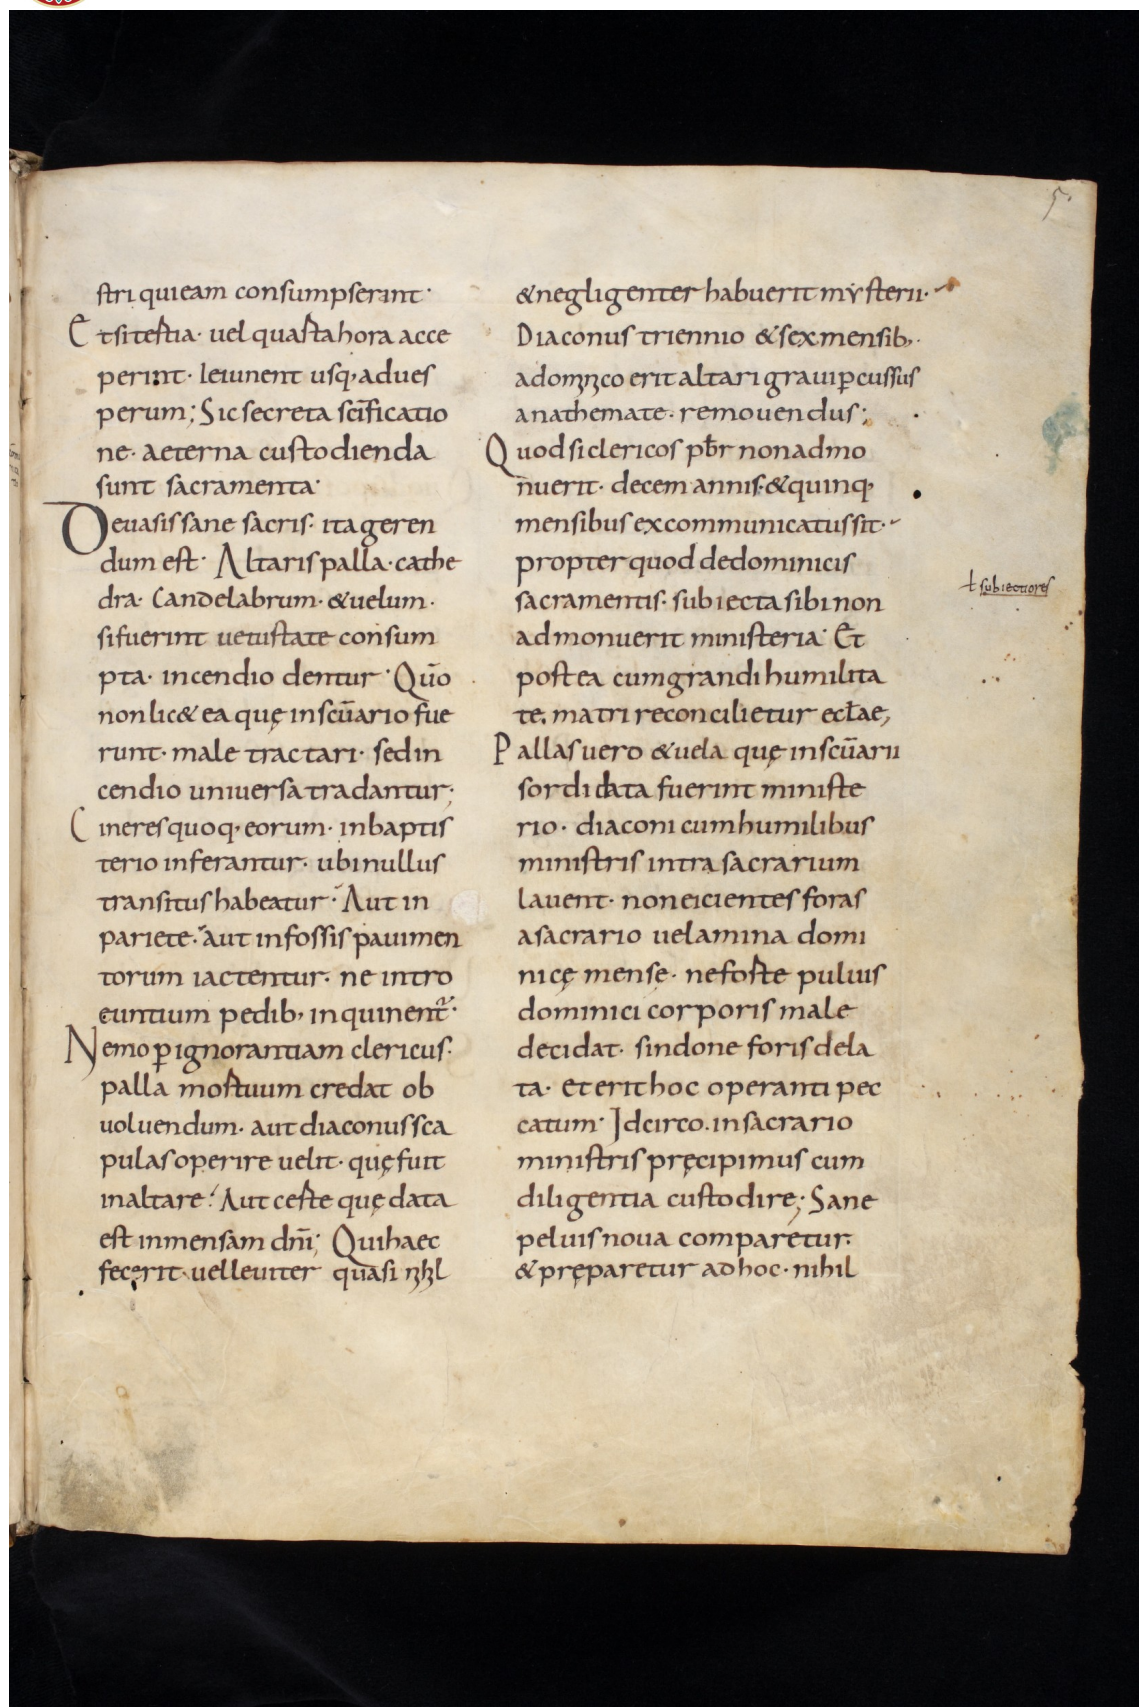 5.
stri qui eam consumpserint·
Et si tertia· uel quarta hora acce
perint· Ieiunent usq; ad ues
perum; Sic secreta scīficatio
ne· aeterna custodienda
sunt sacramenta·
De uasis sane sacris· ita geren
dum est· Altaris palla· cathe
dra· Candelabrum· & uelum·
si fuerint uetustate consum
pta· incendio dentur· Quō
non lic& ea quę in scūario fue
runt· male tractari· sed in
cendio uniuersa tradantur;
Cineres quoq; eorum· in baptis
terio inferantur· ubi nullus
transitus habeatur· Aut in
pariete· aut in fossis pauimen
torum iactentur· ne intro
euntium pedib; inquinent᷑·
Nemo ꝑ ignorantiam clericus·
palla mortuum credat ob
uoluendum· aut diaconus sca
pulas operire uelit· quę fuit
in altare· Aut certe quę data
est in mensam dn̄i; Qui haec
fecerit· uel leuiter quasi nihil
& negligenter habuerit mẏsterii·
Diaconus triennio & sex mensib;·
a dominico erit altari graui ꝑcussus
anathemate· remouendus;
Quod si clericos pb̄r non admo
nuerit· decem annis· & quinq;
mensibus excommunicatus sit·
propter quod de dominicis
sacramentis· subiecta sibi non
admonuerit ministeria· Et
postea cum grandi humilita
te· matri reconcilietur eccƚae;
Pallas uero & uela quę in scūarii
sordidata fuerint ministe
rio· diaconi cum humilibus
ministris intra sacrarium
lauent· non eicientes foras
a sacrario uelamina domi
nicę mensę· ne forte puluis
dominici corporis male
decidat· sindone foris dela
ta· et erit hoc operanti pec
catum· Idcirco· in sacrario
ministris pręcipimus cum
diligentia custodire; Sane
peluis noua comparetur·
& pręparetur ad hoc· nihil
ƚ subiectiores